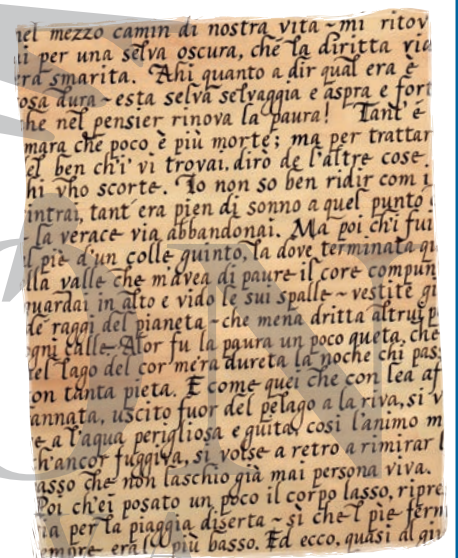 nel mezzo camin di nostra vita ~ mi ritov
ai per una selva oscura, ché la diritta via
era smarita. Ahi quanto a dir qual era è
cosa dura ~ esta selva selvaggia e aspra e fort
che nel pensier rinova la paura! Tant' é
amara che poco è più morte; ma per trattar
del ben ch'i' vi trovai, diro de l'altre cose
chi vho scorte. Io non so ben ridir com i
intrai, tant' era pien di sonno a quel punto
la verace via abbandonai. Ma poi ch'i fui
al pie d'un colle guinto, la dove terminata qu
lla valle che m'avea di paure il core compun
guardai in alto e vido le sui spalle ~ vestite gi
de' raggi del pianeta ~ che mena dritta altrui p
ogni calle. Alor fu la paura un poco queta, che
nel lago del cor m'era dureta la noche chi pas
on tanta pieta. E come quei che con lea af
annata, uscito fuor del pelago a la riva, si v
e a l'aqua perigliosa e guita, cosi l'animo m
h'ancor fuggiva, si volse a retro a rimirar l
asso che non laschio già mai persona viva.
Poi ch'ei posato un poco il corpo lasso, ripre
via per la piaggia diserta ~ sì che'l pie ferm
empre era'l più basso. Ed ecco, quasi al gi